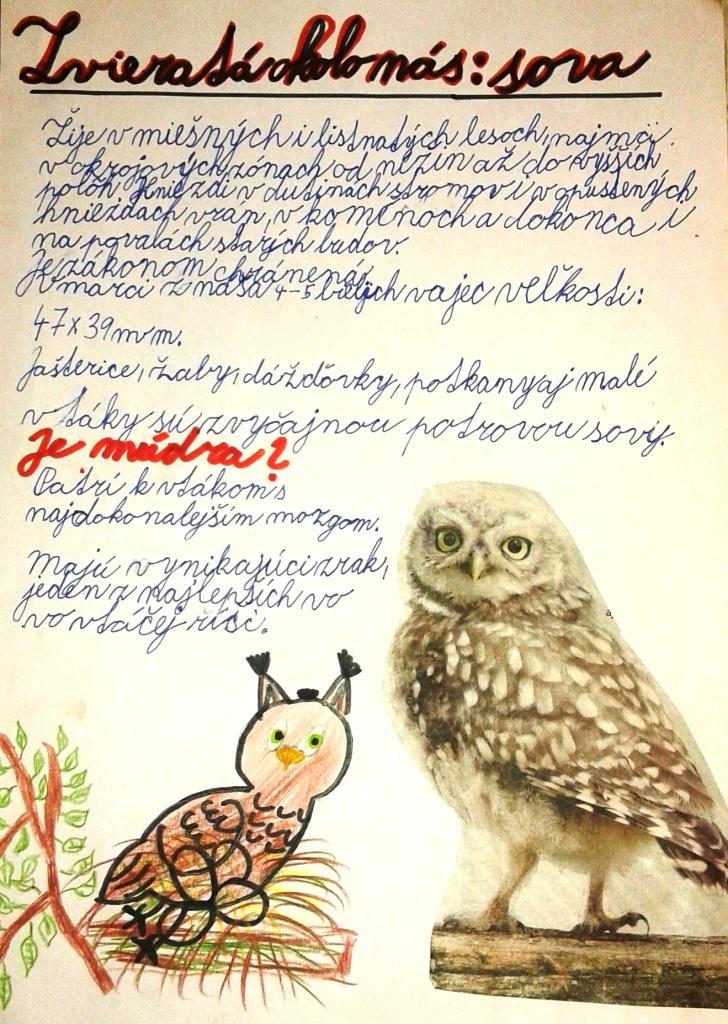 Zvieratá okolo nás: sova
Žije v miešných i listnatých lesoch, najmä
v okrajových zónach od nížin až do vyšších
polôh. Hniezdi v dutinách stromov i v opustených
hniezdach vrán, v komínoch a dokonca i
na povalách starých budov.
Je zákonom chránená.
V marci znáša 4-5 bielych vajec veľkosti:
47x39mm.
Jašterice, žaby, dážďovky, potkany aj malé
vtáky sú zvyčajnou potravou sovy.
Je múdra?
Patrí k vtákom s
najdokonalejším mozgom.
Majú vynikajúci zrak,
jeden z najlepších vo
vo vtáčej ríši.